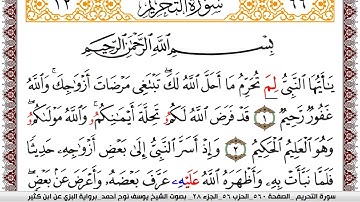 ١٢ سورة التحريم ٦٦
بِسْمِ اللَّهِ الرَّحْمَٰنِ الرَّحِيمِ
يَٰأَيُّهَا النَّبِيُّ لِمَ تُحَرِّمُ مَا أَحَلَّ اللَّهُ لَكَ تَبْتَغِي مَرْضَاتَ أَزْوَٰجِكَ وَاللَّهُ
غَفُورٌ رَّحِيمٌ ١ قَدْ فَرَضَ اللَّهُ لَكُمُۥ تَحِلَّةَ أَيْمَٰنِكُمُۥ وَاللَّهُ مَوْلَىٰكُمُۥ
وَهُوَ الْعَلِيمُ الْحَكِيمُ ٢ وَإِذْ أَسَرَّ النَّبِيُّ إِلَىٰ بَعْضِ أَزْوَٰجِهِۦ حَدِيثًا
فَلَمَّا نَبَّأَتْ بِهِۦ وَأَظْهَرَهُ اللَّهُ عَلَيْهِۦ عَرَّفَ بَعْضَهُۥ وَأَعْرَضَ عَنۢ بَعْضٍ
سورة التحريم - الصفحة ٥٦٠ - الحزب ٥٦ - الجزء ٢٨ - بصوت الشيخ يوسف نوح احمد - برواية البزي عن ابن كثير